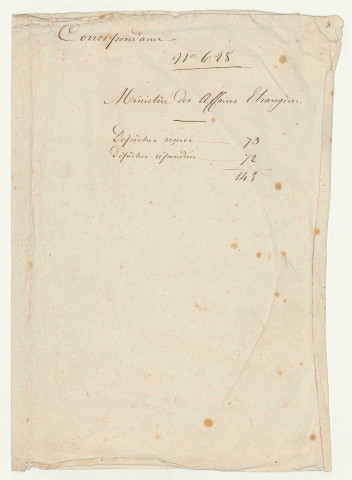 Correspondance
N° 6.28
Ministère des Affaires Etrangères.
Dépêches reçues 73
Dépêches répondues 72
145